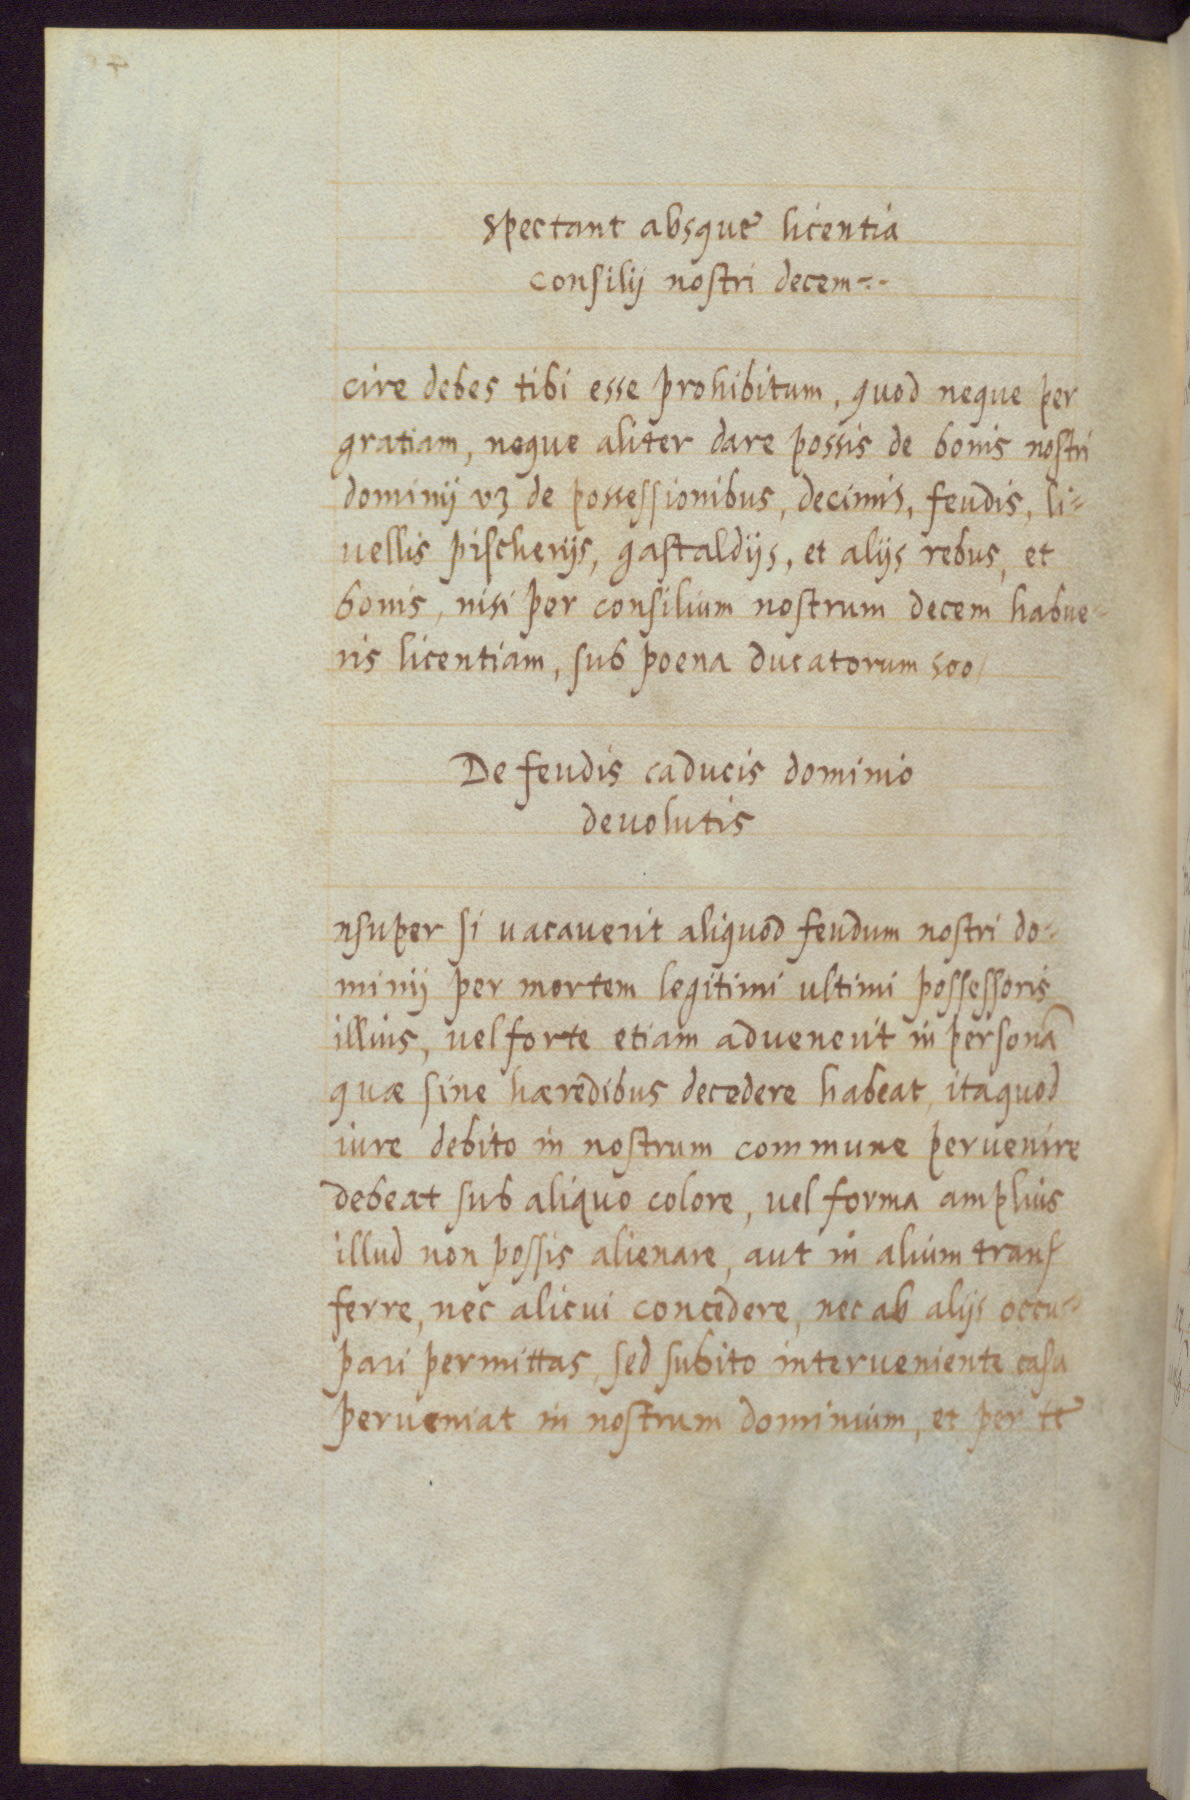 spectant absque licentia
consilij nostri decem-:-
cire debes tibi esse prohibitum, quod neque per
gratiam, neque aliter dare possis de bonis nostri
dominij vz de possessionibus, decimis, feudis, li-
uellis pischerijs, gastaldijs, et alijs rebus, et
bonis, nisi per consilium nostrum decem habue-
ris licentiam, sub poena ducatorum 500/
De feudis caducis dominio
deuolutis
nsuper si uacauerit aliquod feudum nostri do-
minij per mortem legitimi ultimi possessoris
illius, uel forte etiam aduenerit in personā
quæ sine hæredibus decedere habeat, itaquod
iure debito in nostrum commune peruenire
debeat sub aliquo colore, uel forma amplius
illud non possis alienare, aut in alium trans
ferre, nec alicui concedere, nec ab alijs occu-
pari permittas, sed subito interueniente casu
perueniat in nostrum dominium, et per te